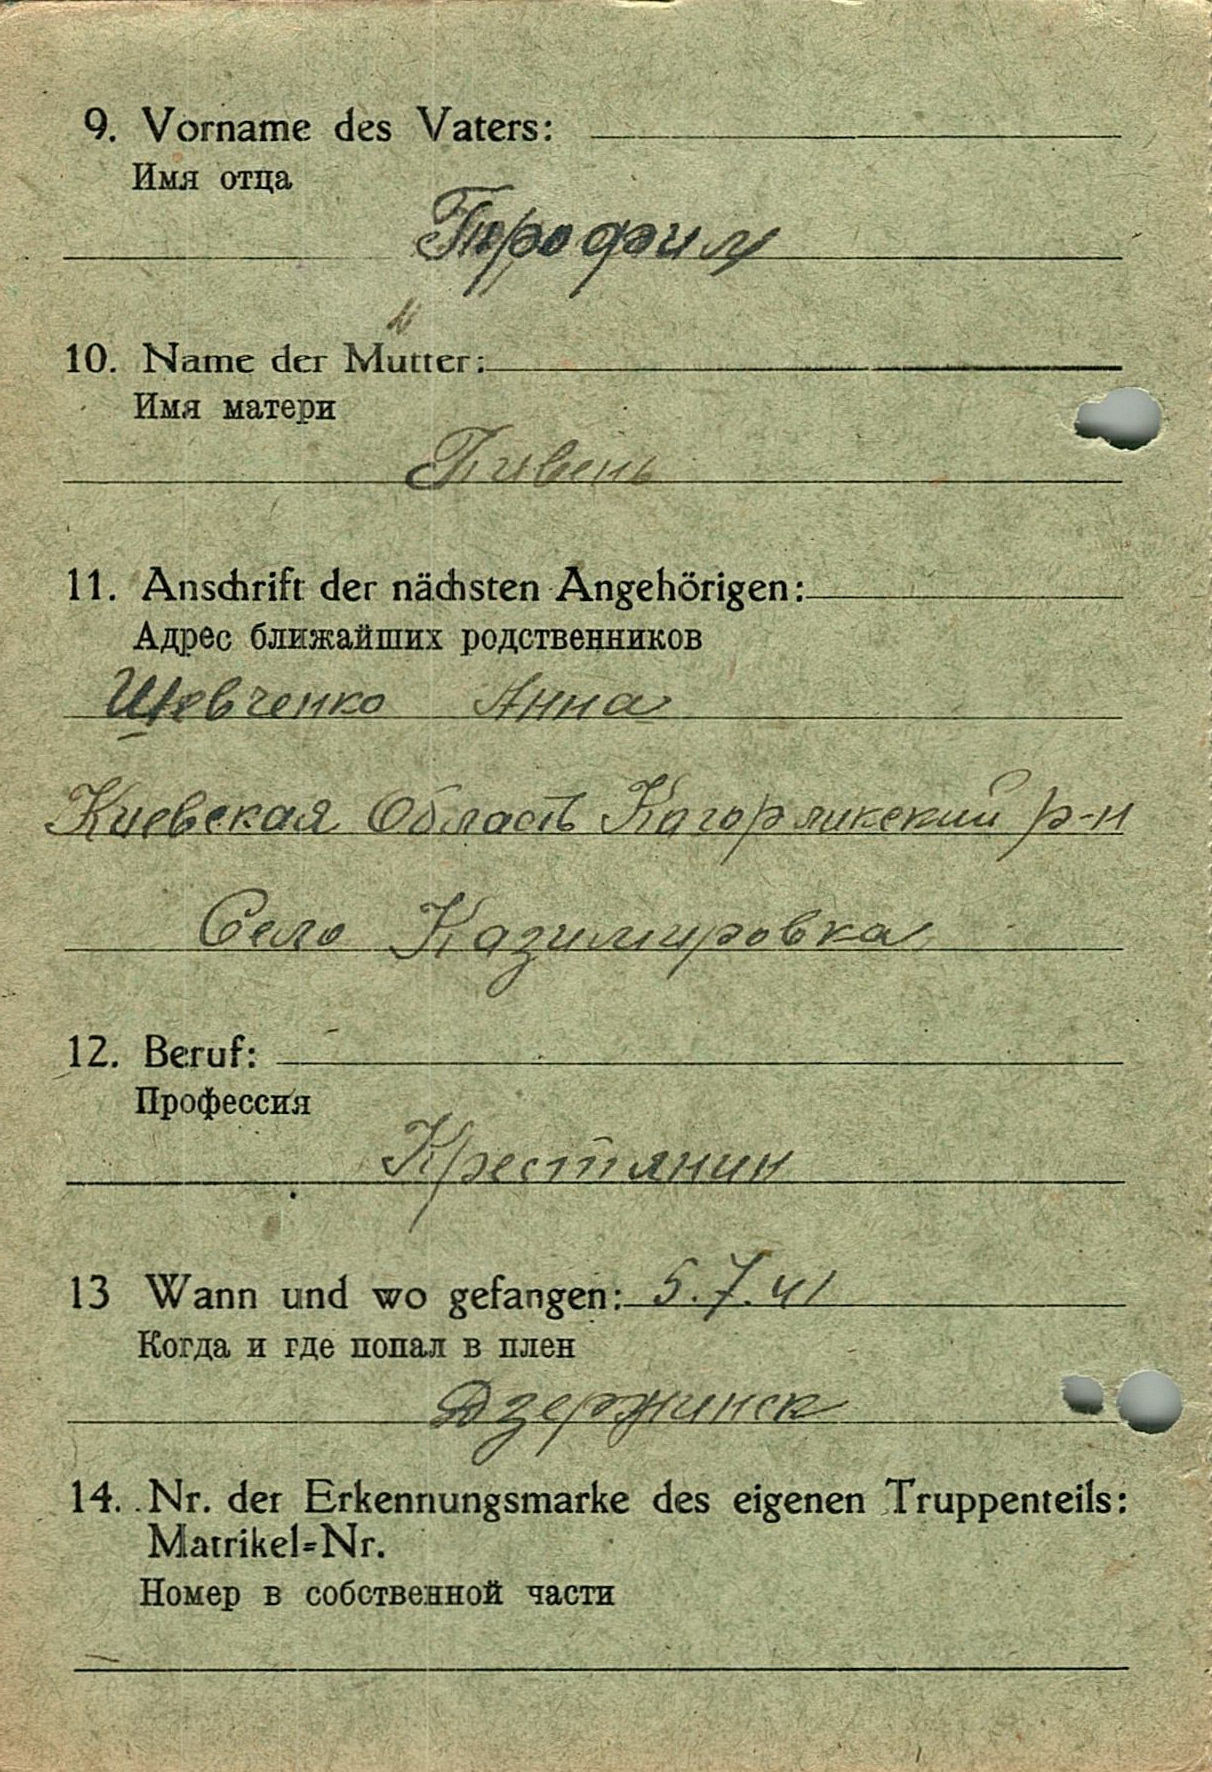 9. Vorname des Vaters:
Имя отца
Трофим
10. Name der Mutter:
Имя матери
Пивень
11. Anschrift der nächsten Angehörigen:
Адрес ближайших родственников
Шевченко Анна
Киевская Область Кагорликский р-н
Село Казимировка
12. Beruf:
Профессия
Крестянин
13 Wann und wo gefangen: 5.7.41
Когда и где попал в плен
Дзержинск
14. Nr. der Erkennungsmarke des eigenen Truppenteils:
Matrikel=Nr.
Номер в собственной части